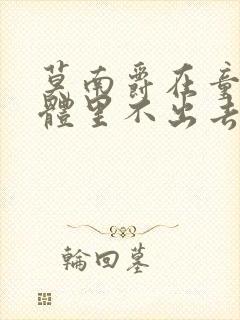 莫南爵在童
體里不出去
輪回墓